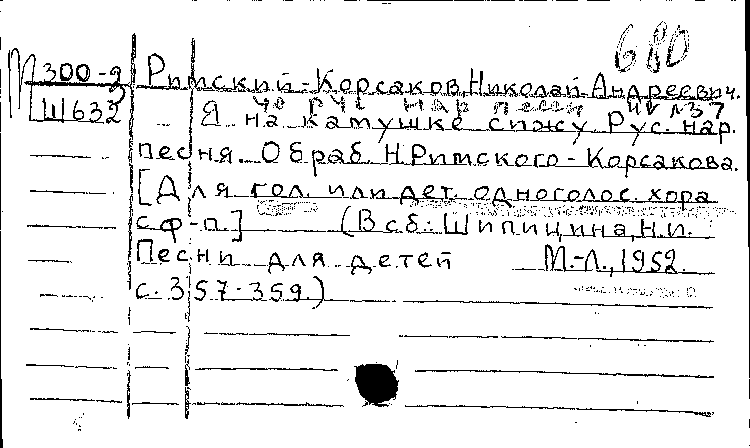 680
М300-д Римский-Корсаков, Николай Андреевич.
Ш632
40 рус нар песен № 37
Я на камушке сижу Рус. нар.
песня. Обраб. Н. Римского-Корсакова.
[Для гол. или дет. одноголос. хора
с ф-п.] (В сб: Шипицина, Н.И.
Песни для детей М.-Л., 1952.
с. 357-359.)